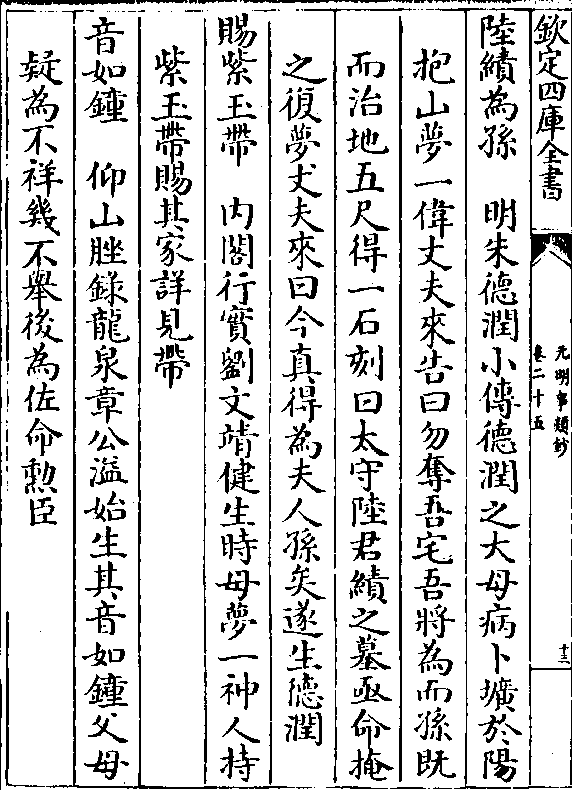 欽定四庫全書
元明事類鈔
卷二十五
十三
陸績為孫　明朱德潤小傳德潤之大母病卜壙於陽
抱山夢一偉丈夫來告曰勿奪吾宅吾將為而孫既
而治地五尺得一石刻曰太守陸君績之墓亟命掩
之復夢丈夫來曰今真得為夫人孫矣遂生德潤
賜紫玉帶　内閣行實劉文靖健生時母夢一神人持
紫玉帶賜其家詳見帶
音如鐘　仰山脞錄龍泉章公溢始生其音如鐘父母
疑為不祥幾不舉後為佐命勲臣